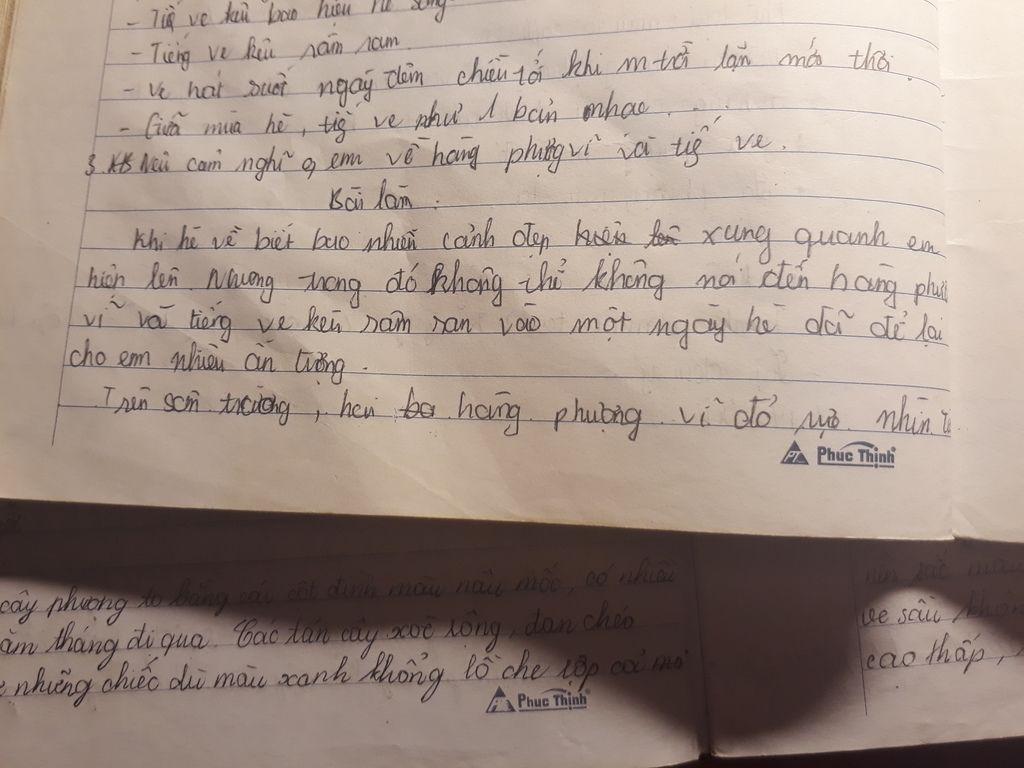 - Tiế ve kêu báo hiệu hè sang
- Tiếng ve kêu râm ran.
- Ve hát suốt ngày đêm chiều tới khi m trời lặn mới thôi.
- Giữa mùa hè, tiế ve như 1 bản nhạc.
3 KB Nêu cảm nghĩ q em về hàng phượng vĩ và tiế ve.
Bài làm.
Khi hè về biết bao nhiên cảnh đẹp xung quanh em
hiện lên. Nhưng trong đó không thể không nói đến hàng phượ
vĩ và tiếng ve kêu râm ran vào một ngày hè đã để lại
cho em nhiều ấn tượng.
Trên sân trường, hai hàng phượng vĩ đỏ rực nhìn từ
Phuc Thịnh
cây phượng to bằng cái cột đình màu nâu mốc, có nhiều
ăm tháng đi qua. Các tán cây xoè rộng, đan chéo
những chiếc dù màu xanh khổng lồ che lợp cả
Phuc Thịnh
nên sắc màu
ve sầu khôn
cao thấp,